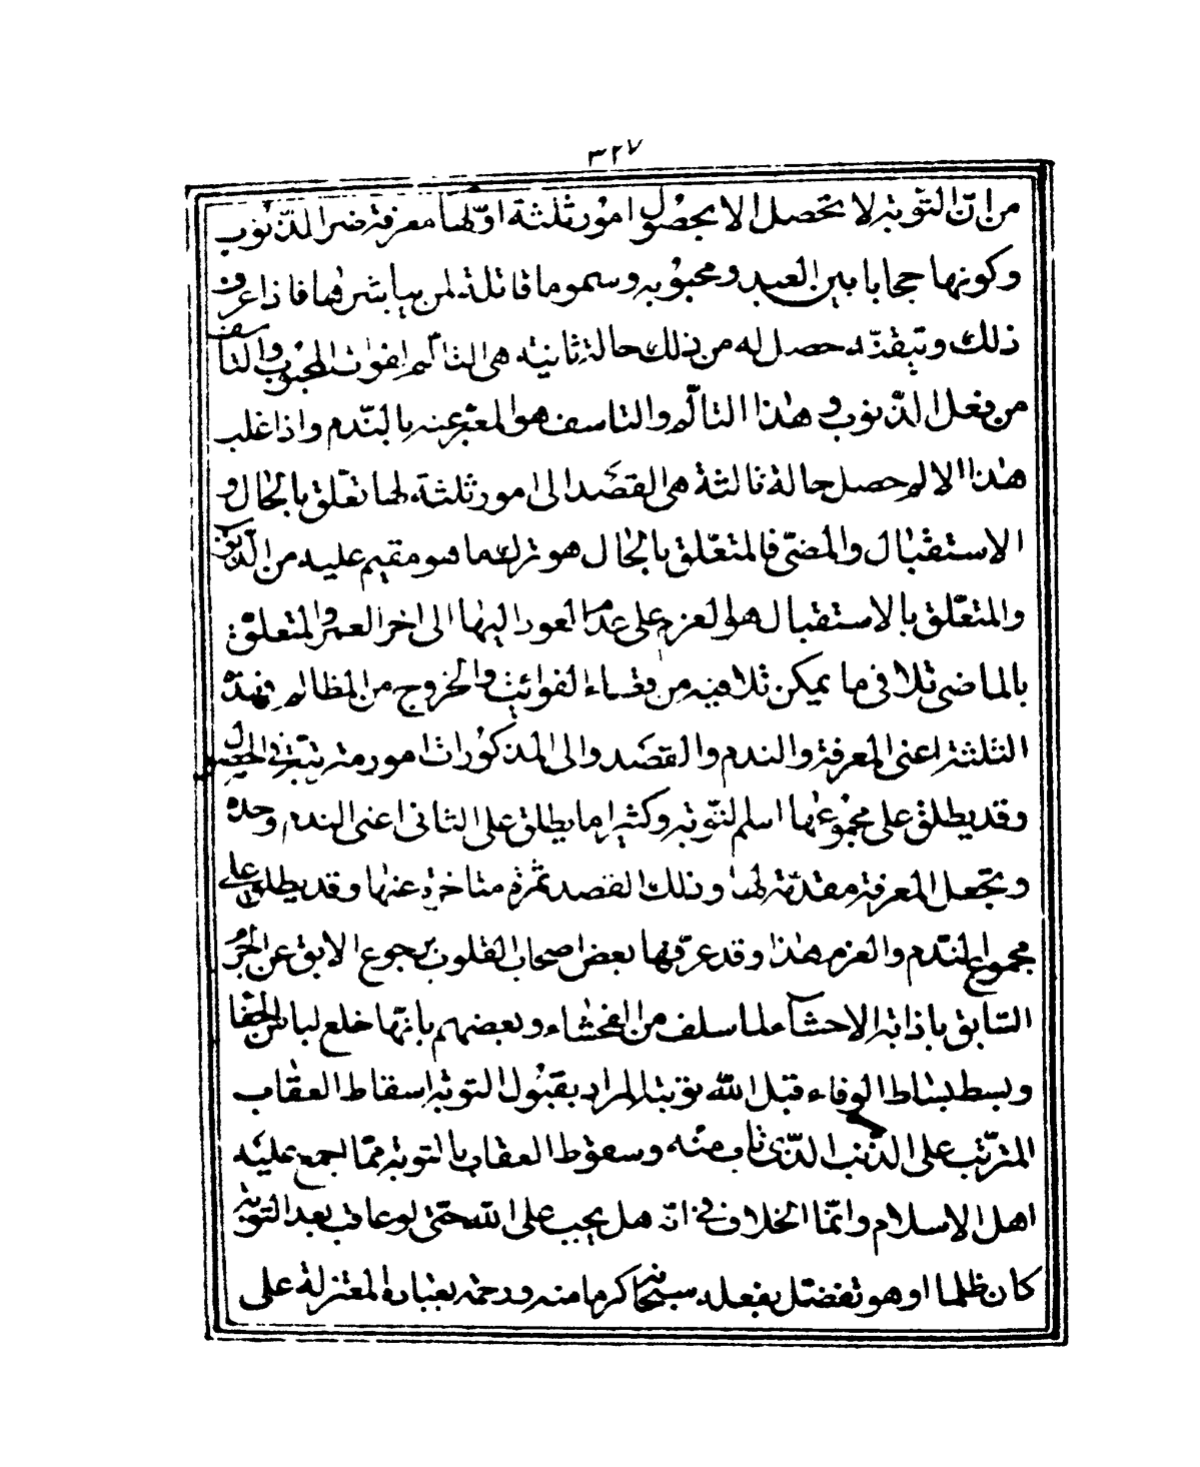 ٣٢٧
من انّ التّوبة لا تحصل الا بحصول امور ثلثة اوّلها معرفة ضرر الذّنوب
وكونها حجابا بين العبد ومحبوبه وسموما قاتلة لمن يباشرها فاذا عرف
ذلك وتيقّنه حصل له من ذلك حالة ثانية هى التالّم لفوات المحبوب والتاسف
من فعل الذّنوب وهذا التالّم والتاسف هو المعبّر عنه بالنّدم واذا غلب
هذا الالم حصل حالة ثالثة هى القصد الى امور ثلثة لها تعلّق بالحال و
الاستقبال والمضىّ فالمتعّلق بالحال هو ترك ما هو مقيم عليه من الذّنوب
والمتعّلق بالاستقبال هو العزم على عدم العود اليها الى اخر العمر والمتعلّق
بالماضى تلافى ما يمكن تلافيه من قضاء الفوائت والخروج من المظالم فهذه
الثلثة اعنى المعرفة والندم والقصد والى المذكورات امور مترتبة فى الحصول
وقد يطلق على مجموعها اسم التّوبة وكثيرا ما يطلق على الثانى اعنى الندم وحده
وتجعل المعرفة مقدّمة لها وذلك القصد ثمرة متاخرة عنها وقد يطلق على
مجموع النّدم والعزم هذا وقد عرّفها بعض اصحاب القلوب برجوع الابق عن الجرم
السّابق باذابة الاحشآء لما سلف من الفحشاء وبعضهم بانّها خلع لباس الجفا
وبسط بساط الوفاء قبل الله توبته المراد بقبول التوبة اسقاط العقاب
المترّتب على الذّنب الّذى تاب منه وسقوط العقاب بالتوبة ممّا اجمع عليه
اهل الاسلام وانّما الخلاف فى انّه هل يجب على الله حتّى لو عاقب بعد التوبة
كان ظلما او هو تفضّل بفعله سبحانه كرما منه ورحمة بعباده المعتزلة على